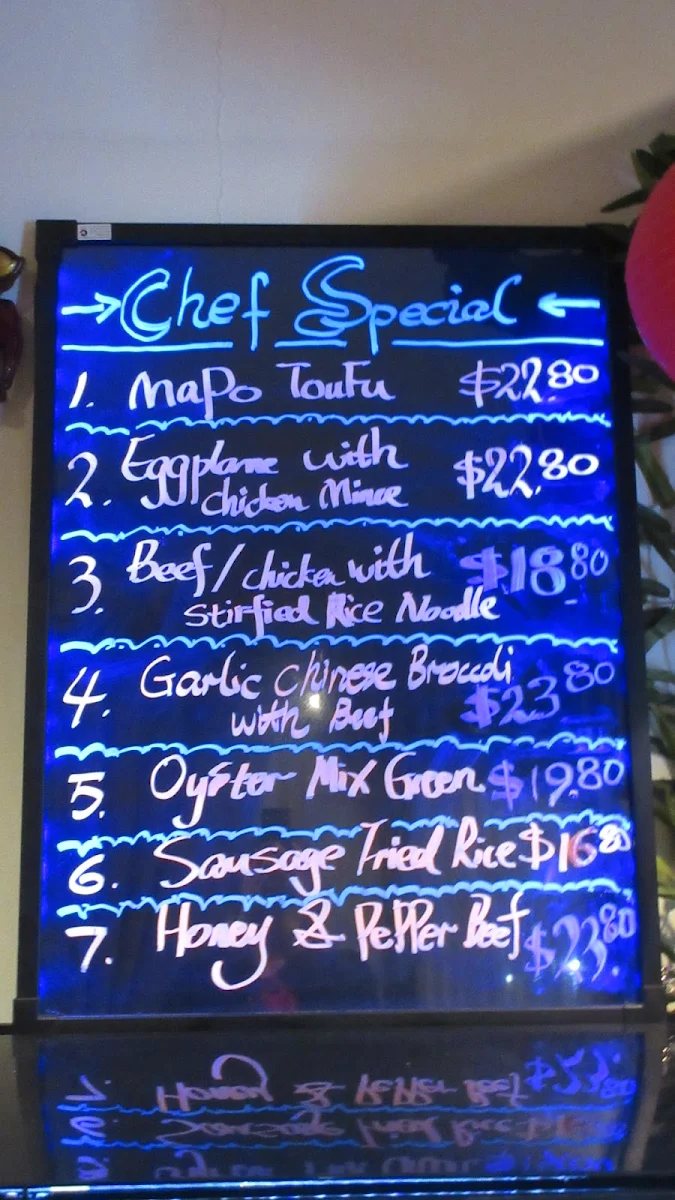 → Chef Special ←
1. Mapo Toufu $22.80
2. Eggplane with $22.80
chicken Mince
3. Beef/chicken with $18.80
Stirfied Rice Noodle
4. Garlic Chinese Broccoli $23.80
with Beef
5. Oyster Mix Green $19.80
6. Sausage Fried Rice $16.80
7. Honey & Pepper Beef $23.80